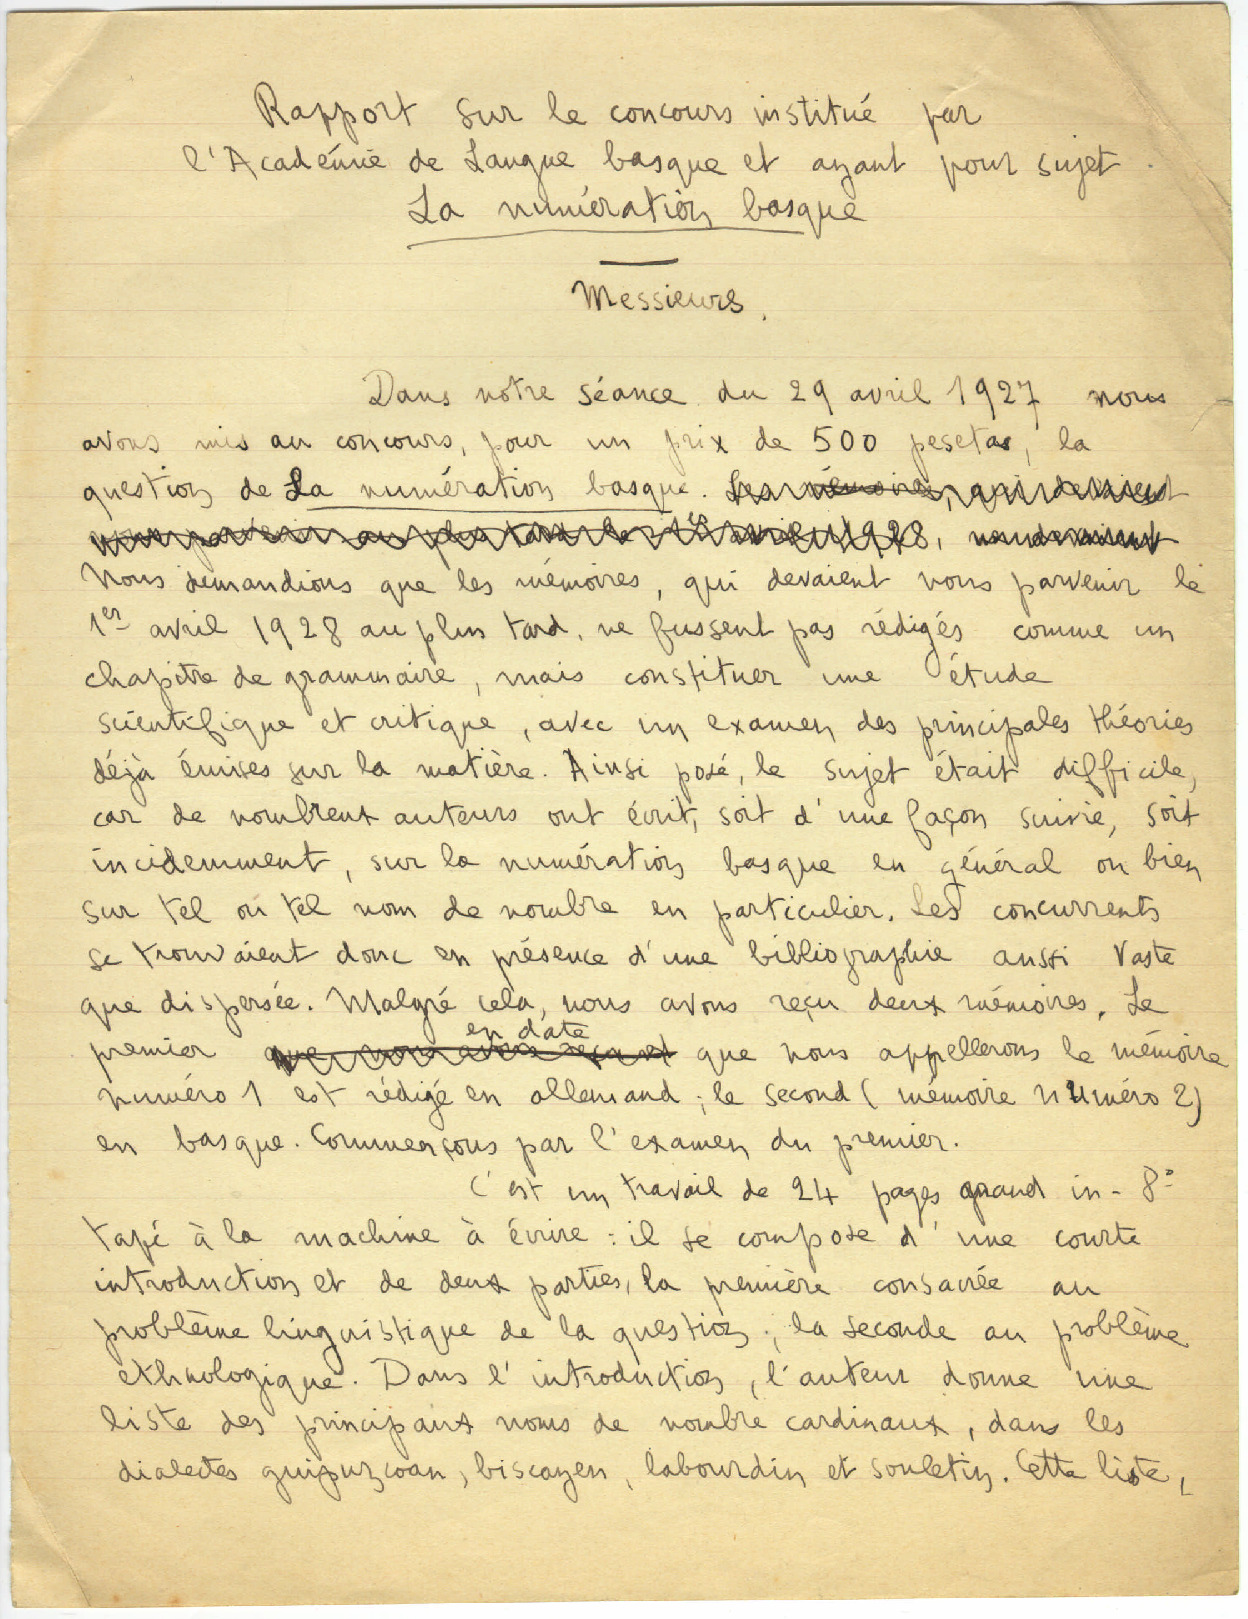 Rapport sur le concours institué par
l'Académie de Langue basque et ayant pour sujet
La numération basque
Messieurs,
Dans notre séance du 29 avril 1927 nous
avons mis au concours, pour un prix de 500 pesetas, la
question de La numération basque. Les mémoires, qui devaient
nous parvenir au plus tard le 1er avril 1928,
Nous demandions que les mémoires, qui devaient nous parvenir le
1er avril 1928 au plus tard, ne fussent pas rédigés comme un
chapitre de grammaire, mais constituer une étude
scientifique et critique, avec un examen des principales théories
déjà émises sur la matière. Ainsi posé, le sujet était difficile,
car de nombreux auteurs ont écrit, soit d'une façon suivie, soit
incidemment, sur la numération basque en général ou bien
sur tel ou tel nom de nombre en particulier. Les concurrents
se trouvaient donc en présence d'une bibliographie aussi vaste
que dispersée. Malgré cela, nous avons reçu deux mémoires. Le
en date
premier que nous avons reçu et que nous appellerons le mémoire
numéro 1 est rédigé en allemand ; le second (mémoire numéro 2)
en basque. Commençons par l'examen du premier.
C'est un travail de 24 pages grand in-8º
tapé à la machine à écrire : il se compose d'une courte
introduction et de deux parties, la première consacrée au
problème linguistique de la question ; la seconde au problème
ethnologique. Dans l'introduction, l'auteur donne une
liste des principaux noms de nombre cardinaux, dans les
dialectes guipuzcoan, biscayen, labourdin et souletin. Cette liste,